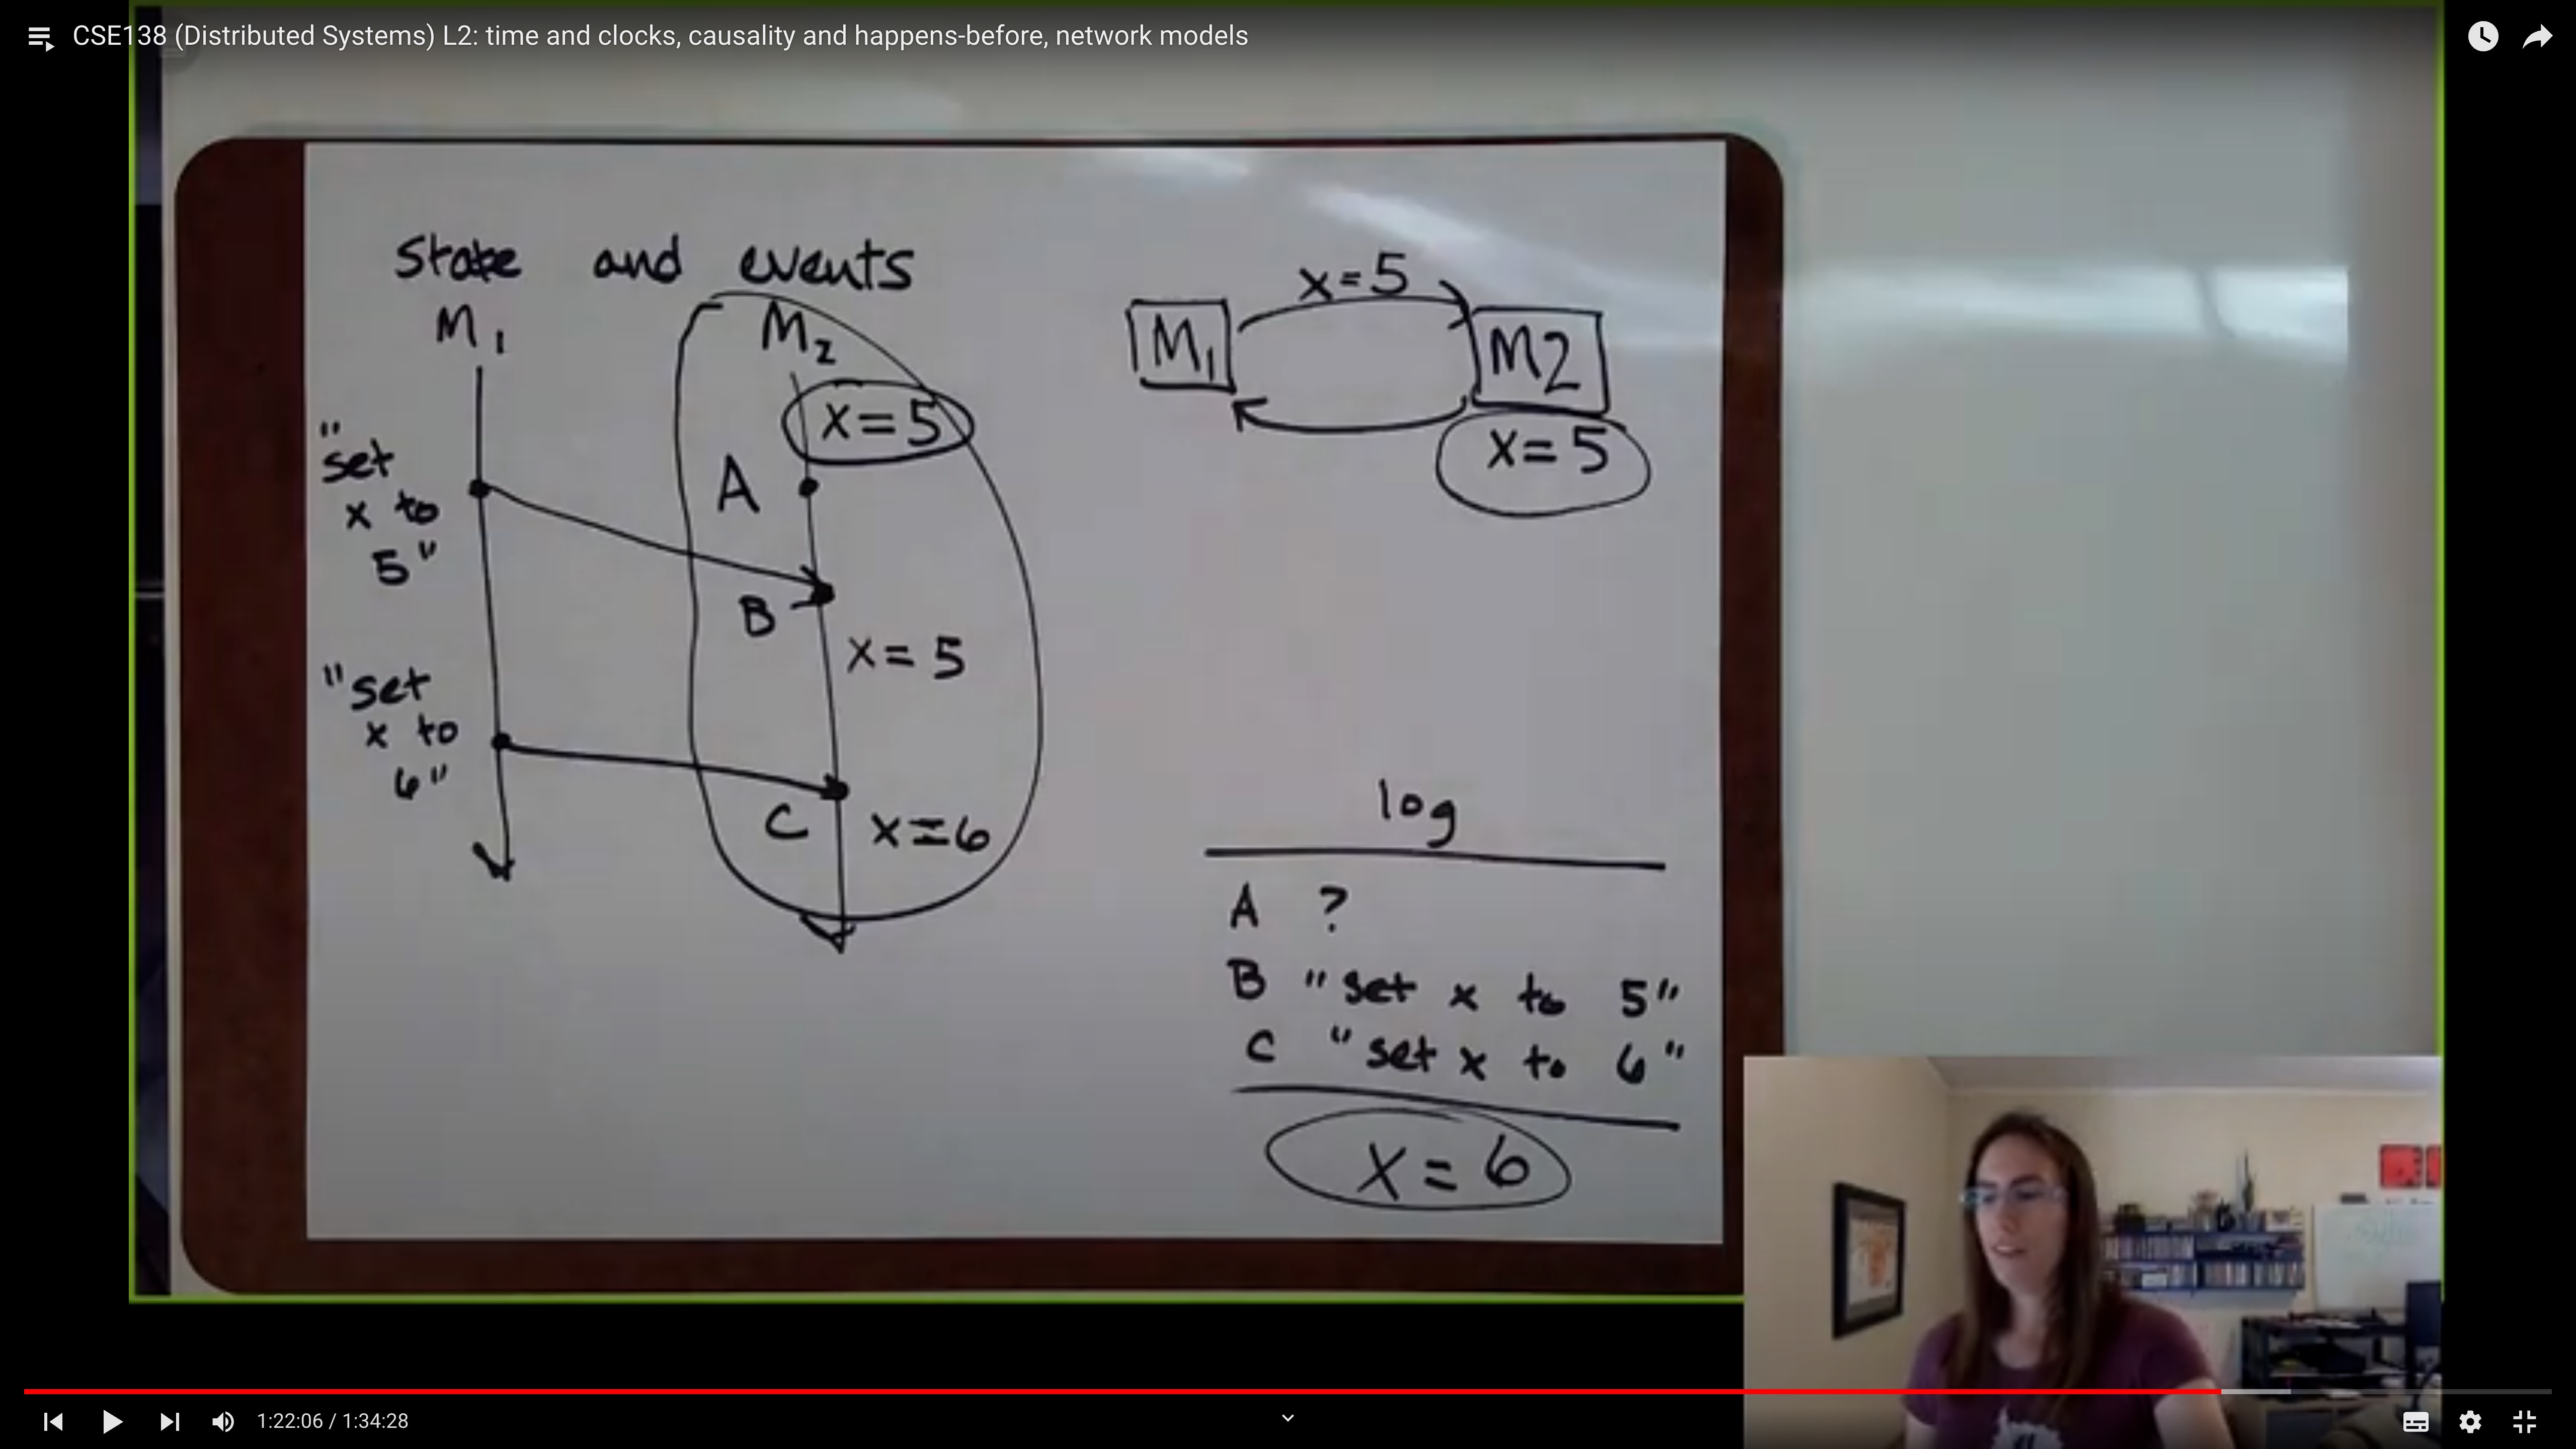 CSE138 (Distributed Systems) L2: time and clocks, causality and happens-before, network models
State and events
M1
M2
x=5
A
"set
x to
5"
B
x=5
"set
x to
6"
C
x=6
x=5
M1
M2
x=5
log
A ?
B "set x to 5"
C "set x to 6"
x=6
1:22:06 / 1:34:28